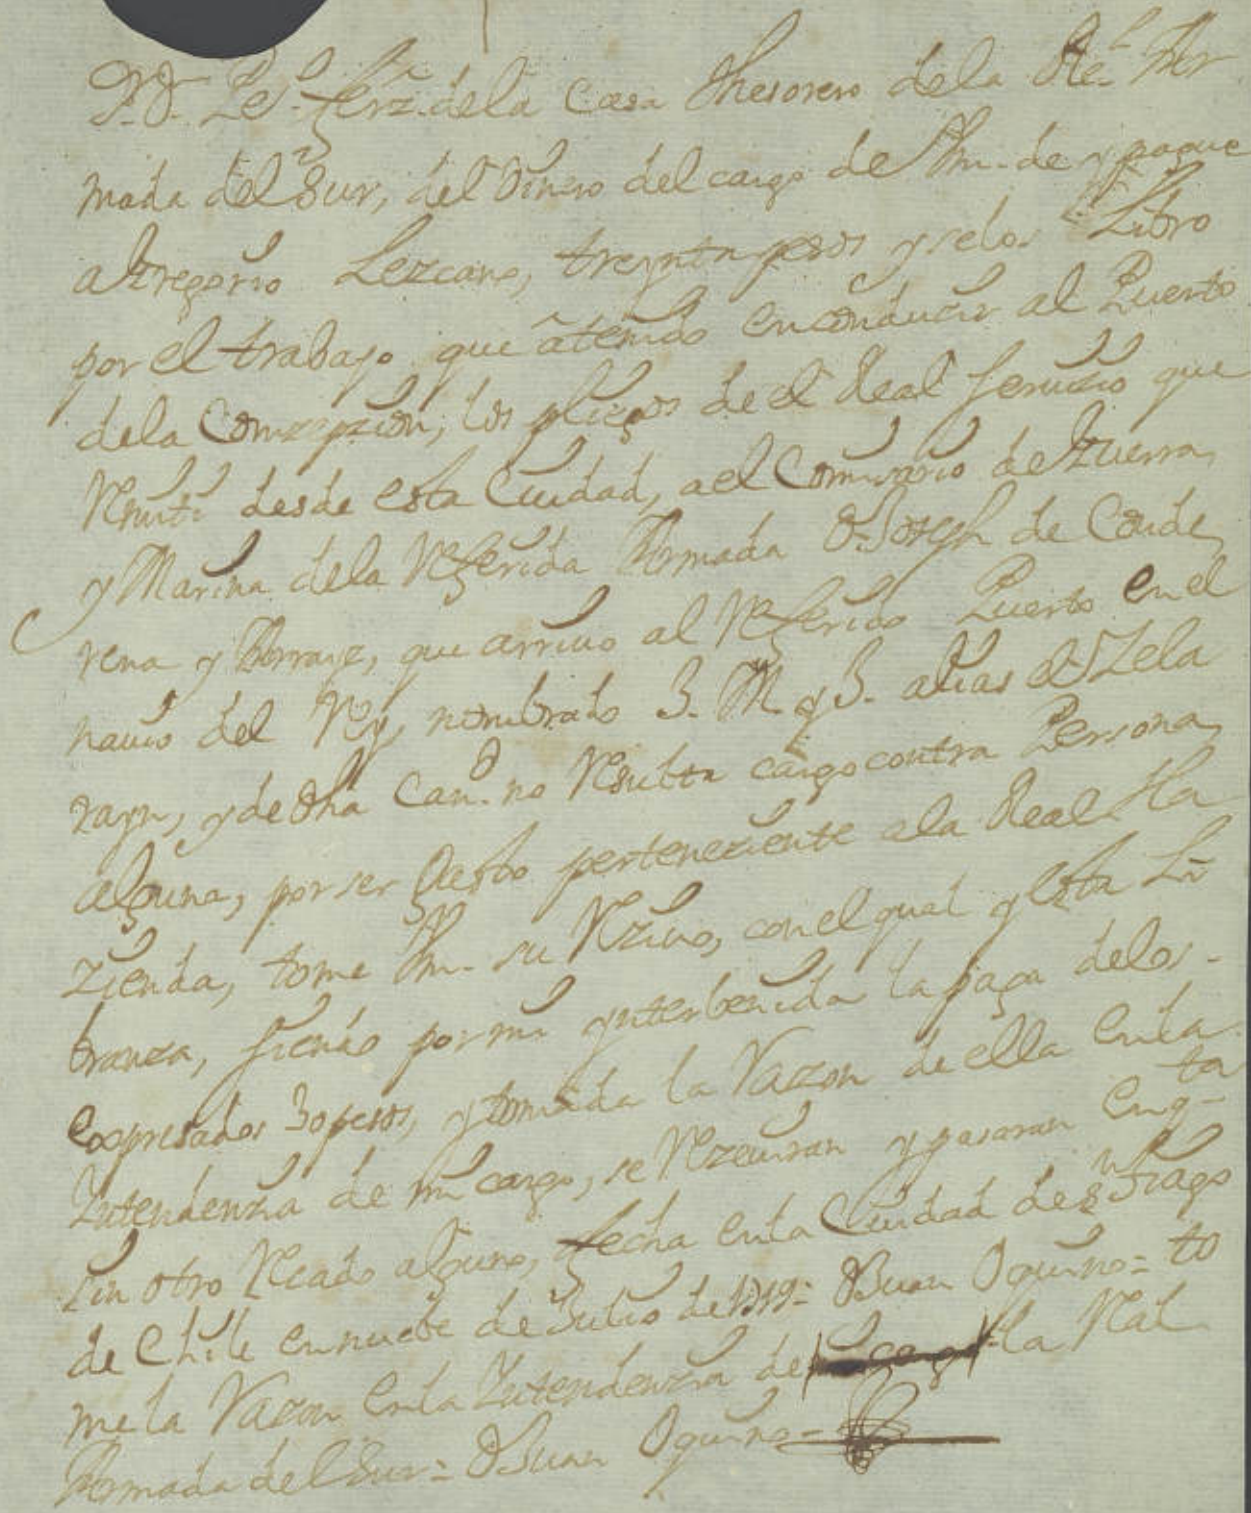 Sr. Dn. Pe.º ferz. de la Casa thesorero de la Re.l Ar
mada del Sur, del Dinero del cargo de Vm. de y pague
a Gregorio Lezcano, treynta pesos y se los Libro
por el trabajo que â tenido en conducir al Puerto
de la Conzepzion, los pliegos de el Real seruizio que
Remiti desde esta Ciudad, a el Comisario de Guerra,
y Marina de la Referida Armada D. Joseph de Conde,
rena y Arraye, que arriuo al Referido Puerto en el
nauio del Rey, nombrado J. M. y J. alias el Zela
rayn, y de dha Can.d no Resulta cargo contra Persona,
alguna, por ser Gasto perteneziente a la Real Ha
zienda, tome Vm. su Reziuo, con el qual y esta Li
branza, siendo por mi ynterbenida la paga de los -
expresados 30 pesos, y tomada la Razon de ella en la
Intendenzia de mi cargo, se Reziuiran y pasaran en q.ta
sin otro Recado alguno, fecha en la Ciudad de S.ntiago
de Chile en nuebe de Julio de 1719= D Juan Oquino= to
me la Razon en la Intendenzia de la Real
Armada del Sur= D Juan Oquino=